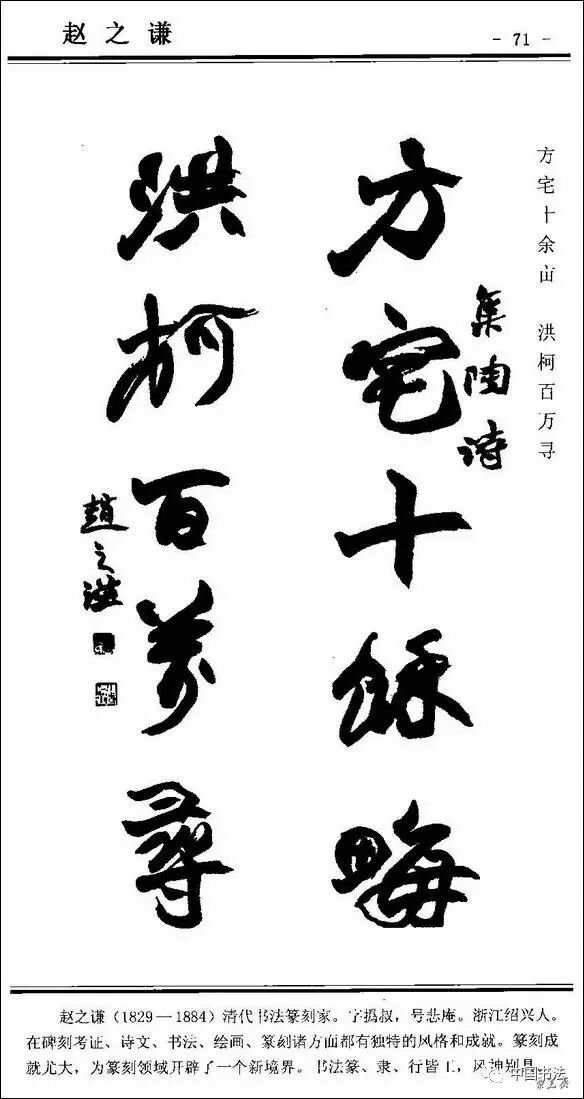 赵之谦
- 71 -
方宅十余亩 洪柯百万寻
集陶詩
方宅十餘畮
洪柯百萬尋
趙之謙
赵之谦(1829—1884)清代书法篆刻家。字㧑叔，号悲庵。浙江绍兴人。
在碑刻考证、诗文、书法、绘画、篆刻诸方面都有独特的风格和成就。篆刻成
就尤大，为篆刻领域开辟了一个新境界。书法篆、隶、行皆工，风神别具。
中国书法